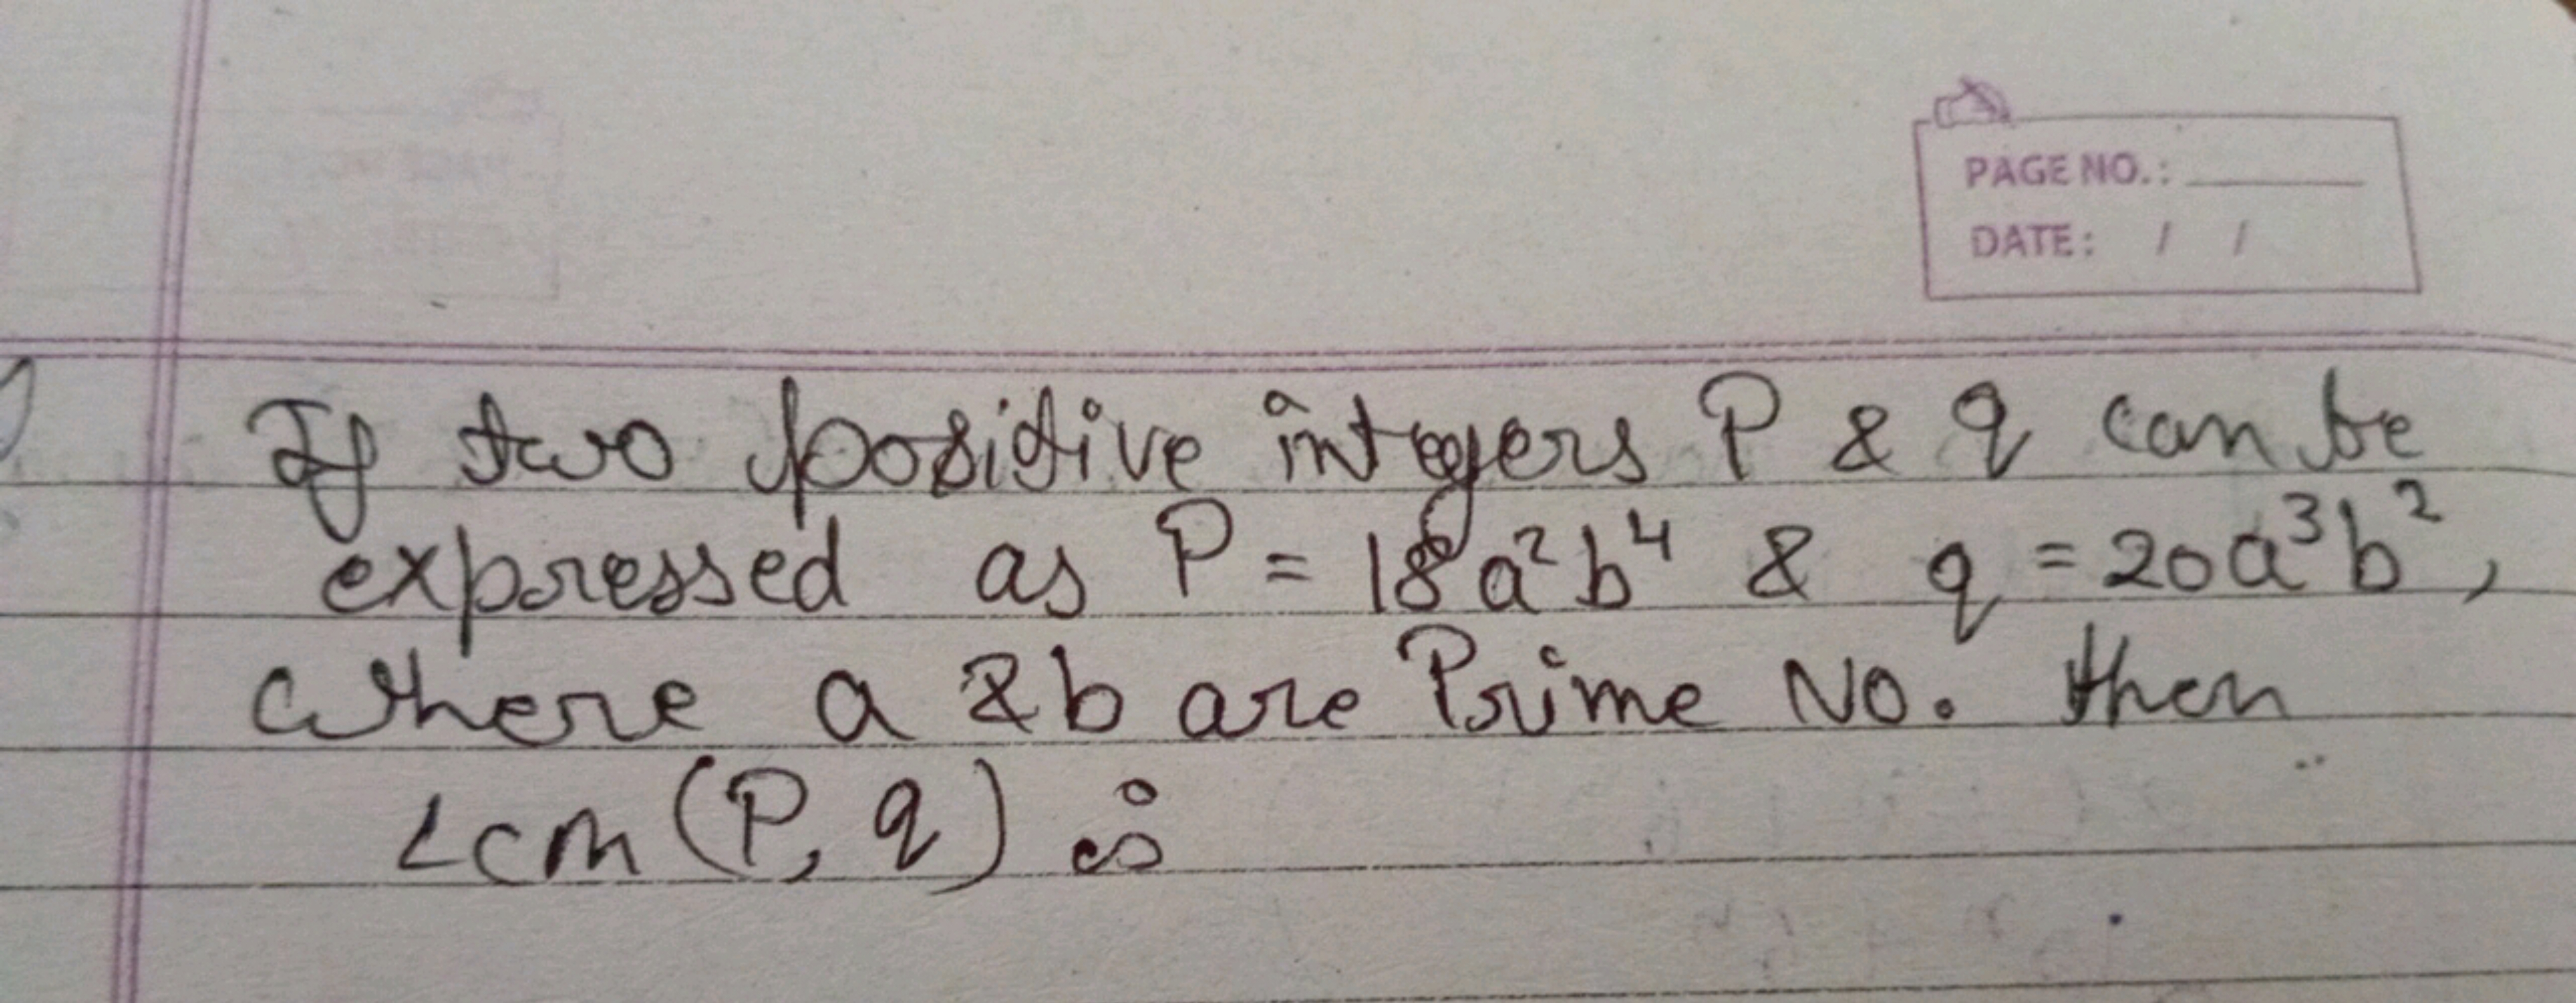 PAGE NO.:
DATE: / /
If two positive integers P & q can be
expressed as P = 18a²b⁴ & q = 20a³b²,
where a & b are Prime No. then
Lcm (P, q) is